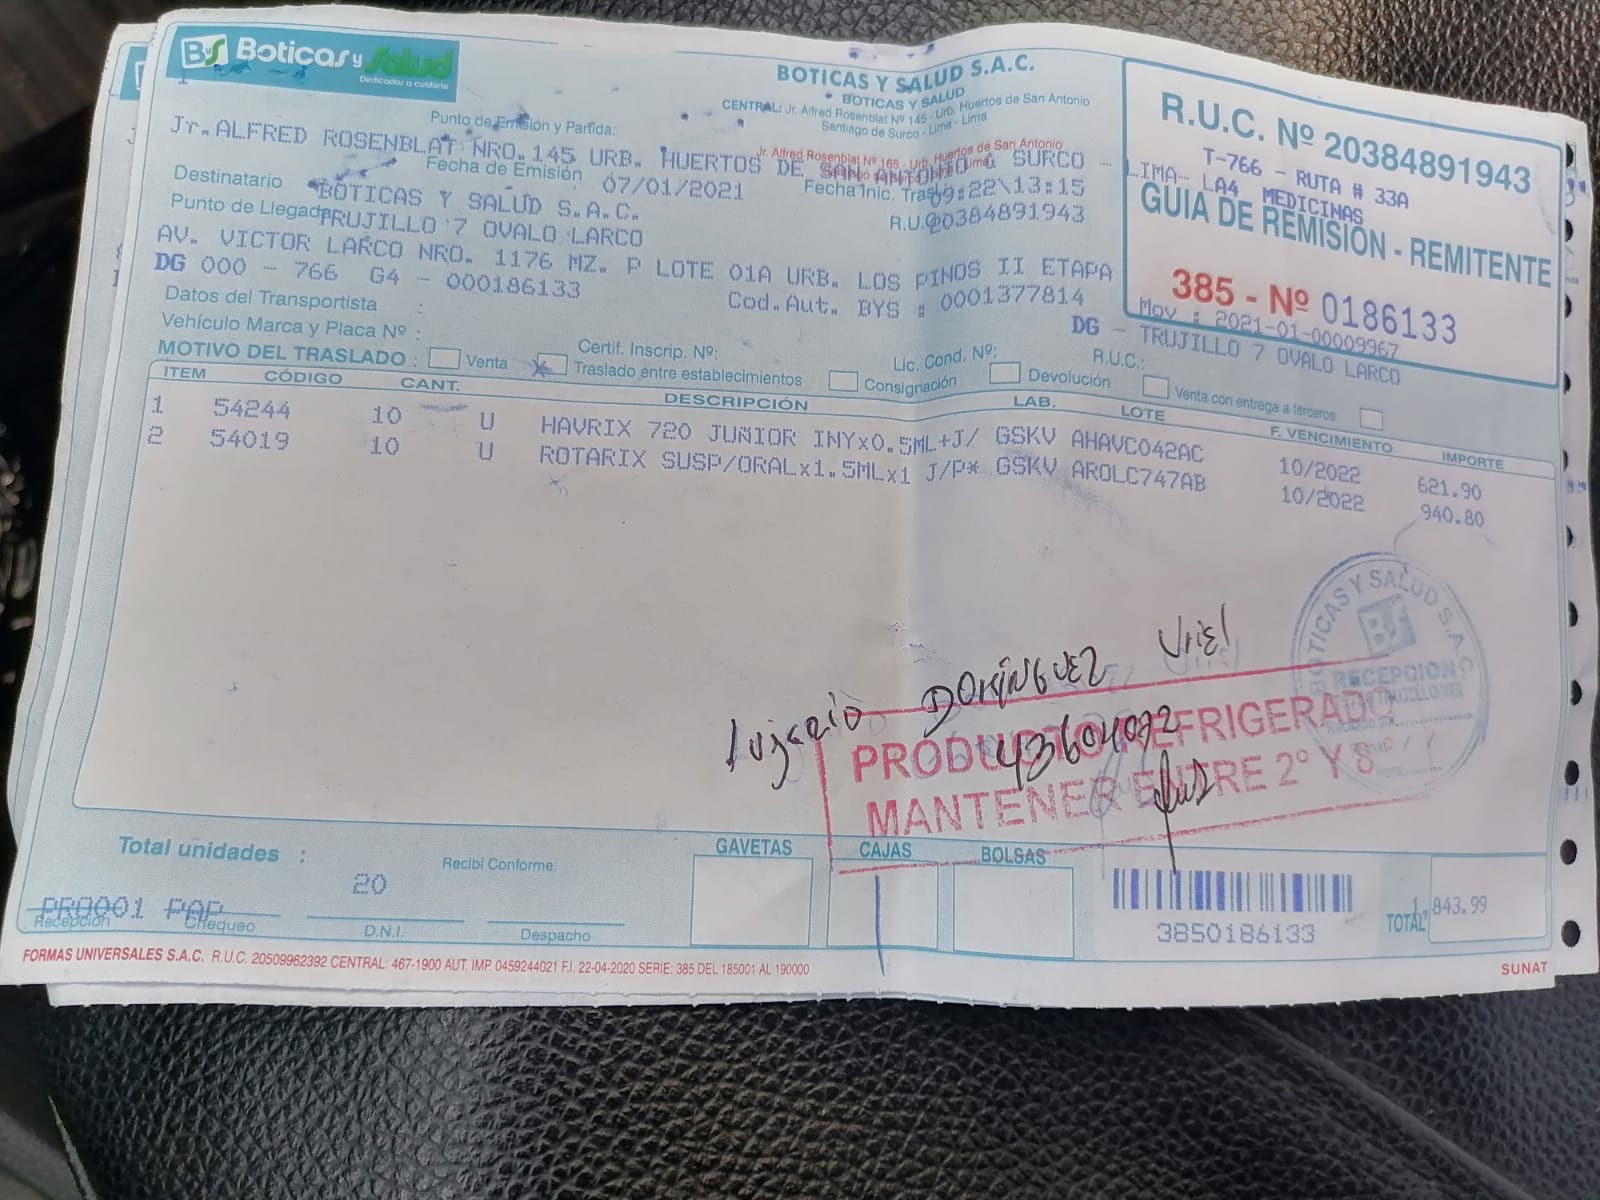 BS Boticas y Salud
Dedicados a cuidarte
BOTICAS Y SALUD S.A.C.
BOTICAS Y SALUD
CENTRAL: Jr. Alfred Rosenblat Nº 145 - Urb. Huertos de San Antonio
Santiago de Surco - Lima - Lima
Jr. Alfred Rosenblat Nº 165 - Urb. Huertos de San Antonio
R.U.C. Nº 20384891943
T-766 - RUTA # 33A
LA4 MEDICINAS
GUIA DE REMISIÓN - REMITENTE
385 - Nº 0186133
Mov : 2021-01-00009967
Punto de Emisión y Partida:
Jr.ALFRED ROSENBLAT NRO.145 URB. HUERTOS DE SAN ANTONIO SURCO - LIMA-
Fecha de Emisión 07/01/2021
Fecha Inic. Tras 09:22\13:15
Destinatario BOTICAS Y SALUD S.A.C.
R.U. 20384891943
Punto de Llegada TRUJILLO 7 OVALO LARCO
AV. VICTOR LARCO NRO. 1176 MZ. P LOTE 01A URB. LOS PINOS II ETAPA
DG 000 - 766 G4 - 000186133
Cod.Aut. BYS : 0001377814
DG - TRUJILLO 7 OVALO LARCO
Datos del Transportista :
Vehículo Marca y Placa Nº :
Certif. Inscrip. Nº:
Lic. Cond. Nº:
R.U.C.:
MOTIVO DEL TRASLADO : Venta Traslado entre establecimientos Consignación Devolución Venta con entrega a terceros
ITEM CÓDIGO CANT. DESCRIPCIÓN LAB. LOTE F. VENCIMIENTO IMPORTE
1 54244 10 U HAVRIX 720 JUNIOR INYx0.5ML+J/ GSKV AHAVC042AC 10/2022 621.90
2 54019 10 U ROTARIX SUSP/ORALx1.5MLx1 J/P* GSKV AROLC747AB 10/2022 940.80
BOTICAS Y SALUD S.A.C.
RECEPCION
DOMINGUEZ Uriel
43604072
PRODUCTO REFRIGERADO
MANTENER ENTRE 2° Y 8
Total unidades : 20
Recibí Conforme:
GAVETAS CAJAS BOLSAS
PR0001 PAP
Recepción Chequeo D.N.I. Despacho
3850186133
TOTAL 1,843.99
FORMAS UNIVERSALES S.A.C. R.U.C. 20509962392 CENTRAL: 467-1900 AUT. IMP. 0459244021 F.I. 22-04-2020 SERIE: 385 DEL 185001 AL 190000
SUNAT